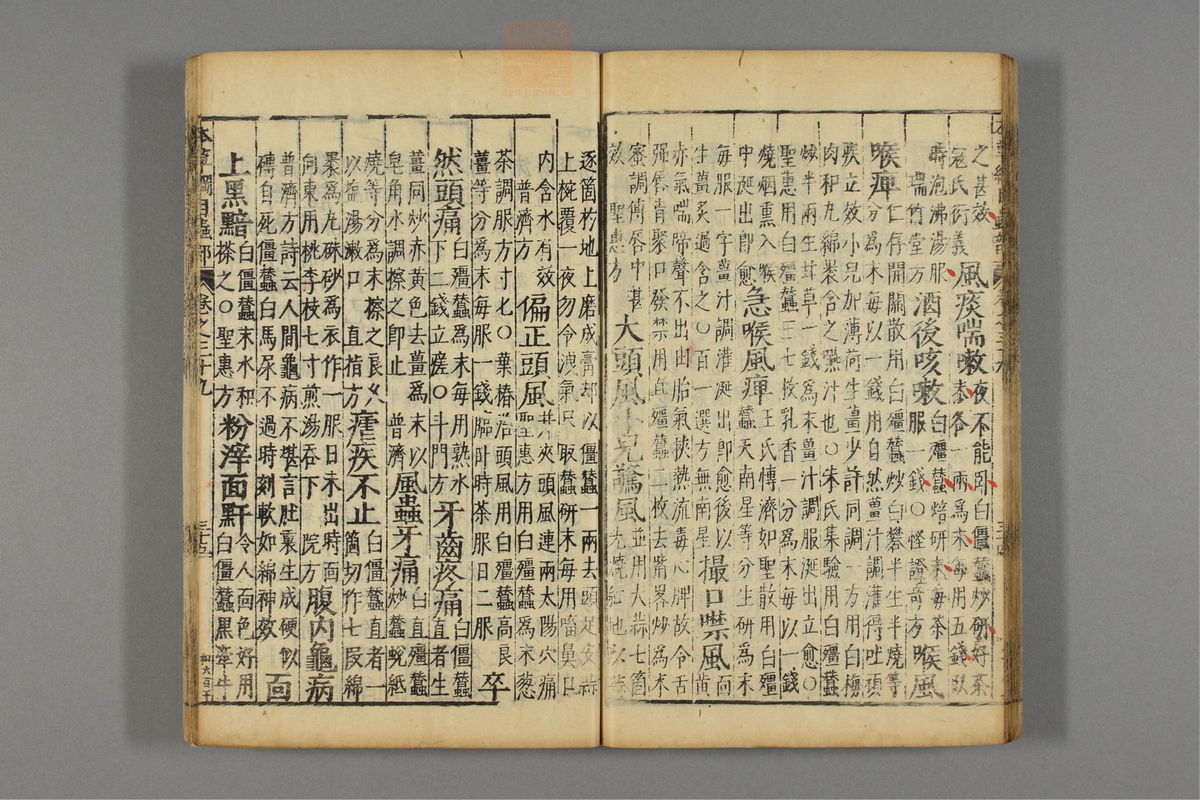 之甚效 風痰喘嗽夜不能卧白僵蠶炒研好茶
寇氏衍義 末各一兩為末每用五錢臥
時泡沸湯服 酒後咳嗽白殭蠶焙研末每茶
服一錢○怪證奇方 喉風
喉痺 仁存開關散用白殭蠶炒白礬半生半燒等
分為末每以一錢用自然薑汁調灌得吐頑
痰立效小兒加薄荷生薑少許同調一方用白梅
肉和丸綿裹含之嚥汁也○朱氏集驗用白殭蠶
炒半兩生甘草一錢為末薑汁調服涎出立愈○
聖惠用白殭蠶三七枚乳香一分為末每以一錢
燒烟熏入喉 王氏博濟如聖散用白殭
中涎出即愈 急喉風痺 蠶天南星等分生研為末
每服一字薑汁調灌涎出即愈後以
生薑炙過含之○百一選方無南星 撮口噤風 面黃
赤氣喘啼聲不出由胎氣挾熱流毒心脾故令舌
強唇青聚口發噤用直殭蠶二枚去嘴畧炒為末
蜜調傅唇中甚
效 聖惠方 大頭風小兒驚風並用大蒜七箇
先燒紅地以蒜
逐箇於地上磨成膏却以僵蠶一兩去頭足安蒜
上椀覆一夜勿令洩氣只取蠶研末每用㗜鼻口
內含水有效
普濟方 偏正頭風并夾頭風連兩太陽穴痛
聖惠方用白殭蠶為末葱
茶調服方寸匕○葉椿治頭風用白殭蠶高良
薑等分為末每服一錢臨卧時茶服日二服 卒
然頭痛 白殭蠶為末每用熟水
下二錢立瘥○斗門方 牙齒疼痛 白僵蠶
直者生
薑同炒赤黃色去薑為末以
皂角水調擦之即止 普濟 風蟲牙痛 白直殭蠶
炒蠶蛻紙
燒等分為末擦之良久
以鹽湯漱口 直指方 瘧疾不止 白僵蠶直者一
箇切作七段綿
裹為丸硃砂為衣作一服日未出時面
向東用桃李枝七寸煎湯吞下 院方 腹內龜病
普濟方詩云人間龜病不堪言肚裏生成硬似
磚自死僵蠶白馬尿不過時刻軟如綿神效 面
上黑黯 白僵蠶末水和
搽之○聖惠方 粉滓面䵟 令人面色好用
白僵蠶黑牽牛
本草綱目蟲部
卷之三十九